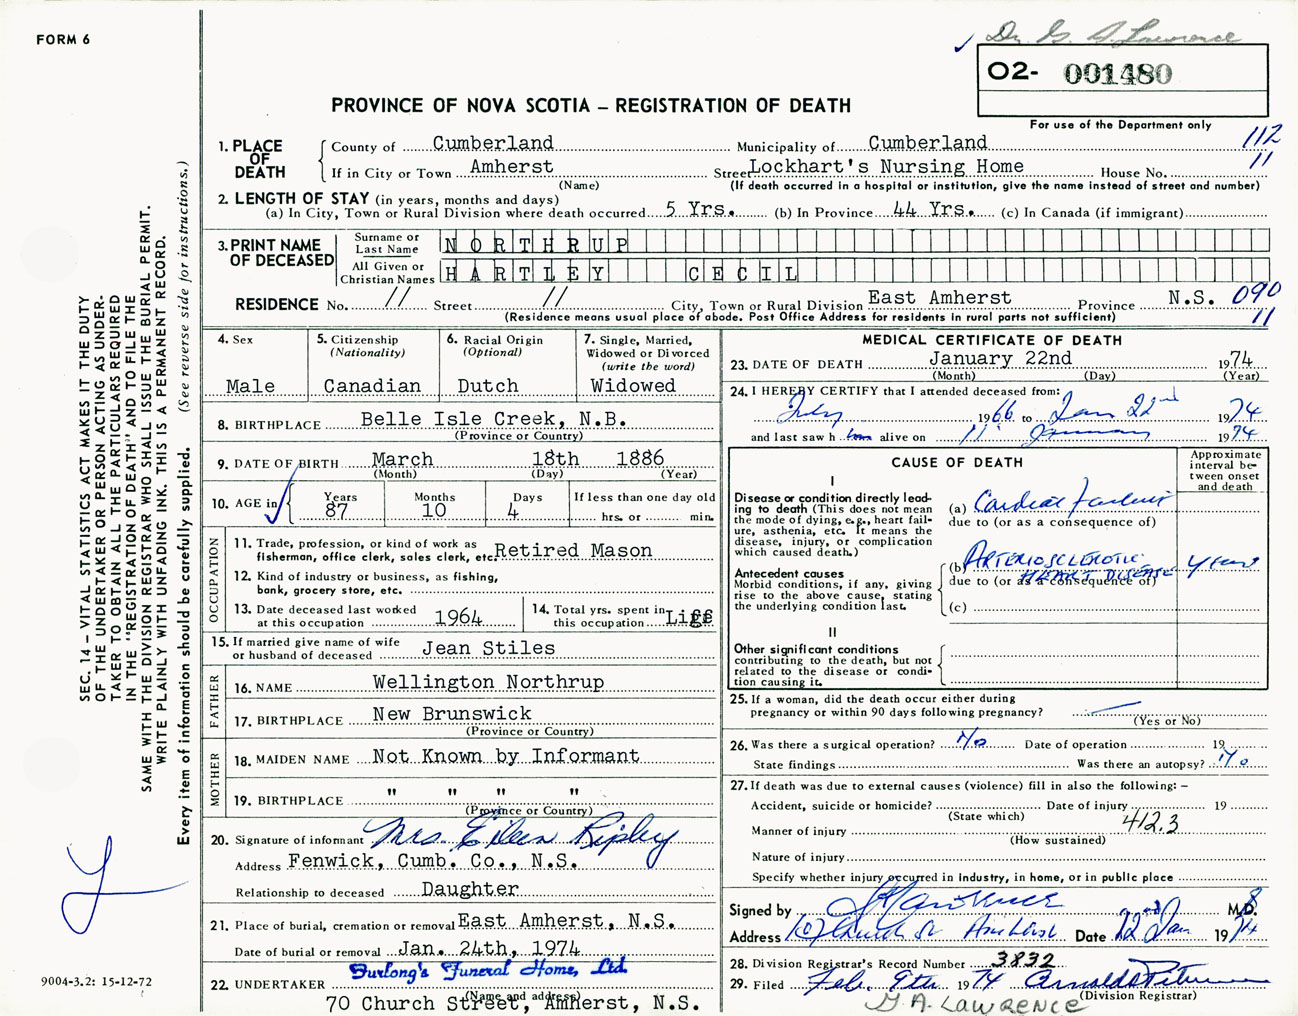 FORM 6
Dr. G. A. Lawrence
O2- 001480
PROVINCE OF NOVA SCOTIA – REGISTRATION OF DEATH
For use of the Department only
112
11
1. PLACE OF DEATH
County of Cumberland Municipality of Cumberland
If in City or Town Amherst Street Lockhart's Nursing Home House No.
(Name) (If death occurred in a hospital or institution, give the name instead of street and number)
2. LENGTH OF STAY (in years, months and days)
(a) In City, Town or Rural Division where death occurred 5 Yrs. (b) In Province 44 Yrs. (c) In Canada (if immigrant)
3. PRINT NAME OF DECEASED
Surname or Last Name NORTHRUP
All Given or Christian Names HARTLEY CECIL
RESIDENCE No. // Street // City, Town or Rural Division East Amherst Province N.S. 090
(Residence means usual place of abode. Post Office Address for residents in rural parts not sufficient) 11
4. Sex
Male
5. Citizenship
(Nationality)
Canadian
6. Racial Origin
(Optional)
Dutch
7. Single, Married,
Widowed or Divorced
(write the word)
Widowed
8. BIRTHPLACE Belle Isle Creek, N.B.
(Province or Country)
9. DATE OF BIRTH March 18th 1886
(Month) (Day) (Year)
10. AGE in
Years 87
Months 10
Days 4
If less than one day old
hrs. or min.
OCCUPATION
11. Trade, profession, or kind of work as
fisherman, office clerk, sales clerk, etc. Retired Mason
12. Kind of industry or business, as fishing,
bank, grocery store, etc.
13. Date deceased last worked
at this occupation 1964
14. Total yrs. spent in
this occupation
15. If married give name of wife
or husband of deceased Jean Stiles
FATHER
16. NAME Wellington Northrup
17. BIRTHPLACE New Brunswick
(Province or Country)
MOTHER
18. MAIDEN NAME Not Known by Informant
19. BIRTHPLACE " " " "
(Province or Country)
20. Signature of informant Mrs. Eileen Ripley
Address Fenwick, Cumb. Co., N.S.
Relationship to deceased Daughter
21. Place of burial, cremation or removal East Amherst, N.S.
Date of burial or removal Jan. 24th, 1974
Furlong's Funeral Home, Ltd.
22. UNDERTAKER
(Name and address)
70 Church Street, Amherst, N.S.
MEDICAL CERTIFICATE OF DEATH
23. DATE OF DEATH January 22nd 1974
(Month) (Day) (Year)
24. I HEREBY CERTIFY that I attended deceased from:
July 1966 to Jan 22nd 1974
and last saw h im alive on 11 January 1974
CAUSE OF DEATH
Approximate
interval be-
tween onset
and death
I
Disease or condition directly lead-
ing to death (This does not mean
the mode of dying, e.g., heart fail-
ure, asthenia, etc. It means the
disease, injury, or complication
which caused death.)
(a) Cardiac failure
due to (or as a consequence of)
Antecedent causes
Morbid conditions, if any, giving
rise to the above cause, stating
the underlying condition last.
(b) ARTERIOSCLEROTIC
HEART DISEASE years
due to (or as a consequence of)
(c)
II
Other significant conditions
contributing to the death, but not
related to the disease or condi-
tion causing it.
25. If a woman, did the death occur either during
pregnancy or within 90 days following pregnancy?
(Yes or No)
26. Was there a surgical operation? No Date of operation 19
State findings Was there an autopsy? No
27. If death was due to external causes (violence) fill in also the following: –
Accident, suicide or homicide? Date of injury 19
(State which)
412.3
Manner of injury
(How sustained)
Nature of injury
Specify whether injury occurred in industry, in home, or in public place
8
Signed by M.D.
Address Church St Amherst Date 22nd Jan 1974
28. Division Registrar's Record Number 3832
29. Filed Feb. 9th 1974
(Division Registrar)
G. A. LAWRENCE
SEC. 14 – VITAL STATISTICS ACT MAKES IT THE DUTY
OF THE UNDERTAKER OR PERSON ACTING AS UNDER-
TAKER TO OBTAIN ALL THE PARTICULARS REQUIRED
IN THE "REGISTRATION OF DEATH" AND TO FILE THE
SAME WITH THE DIVISION REGISTRAR WHO SHALL ISSUE THE BURIAL PERMIT.
WRITE PLAINLY WITH UNFADING INK. THIS IS A PERMANENT RECORD.
Every item of information should be carefully supplied. (See reverse side for instructions.)
9004-3.2: 15-12-72